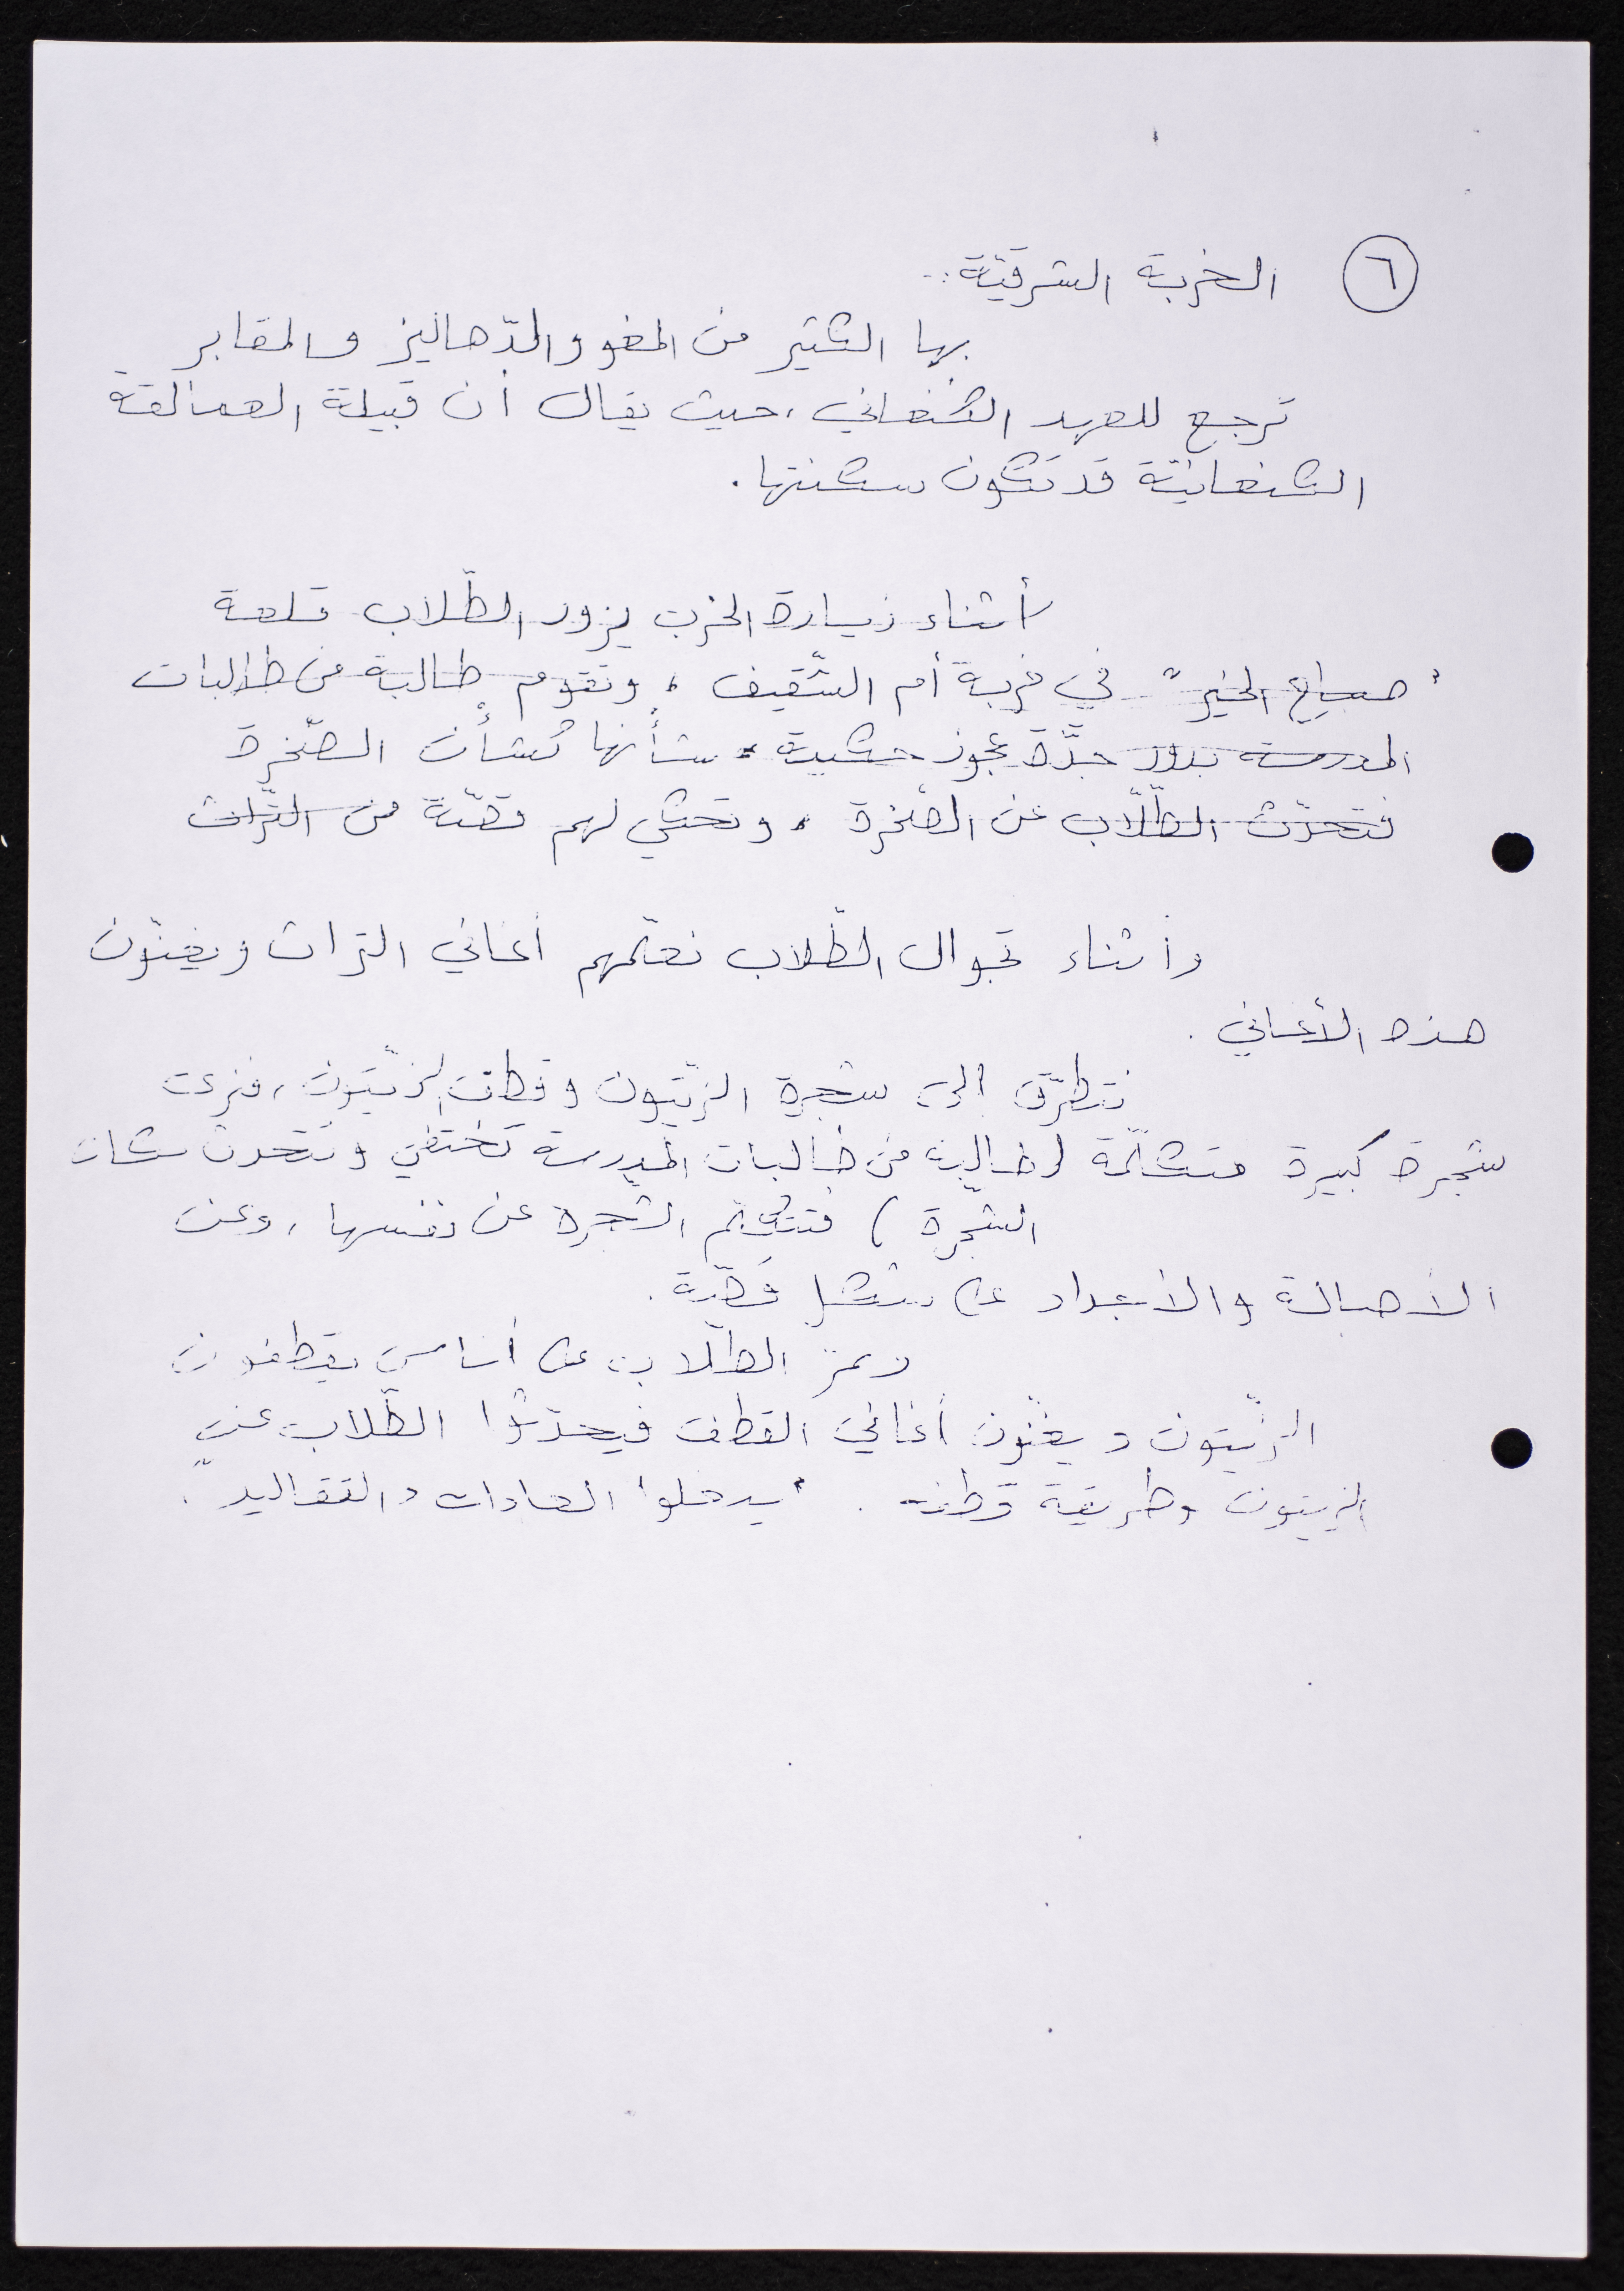 ٦ الخربة الشرقيّة:
بها الكثير من المغر والدّهاليز والمقابر
ترجع للعهد الكنعاني، حيث يقال أن قبيلة العمالقة
الكنعانيّة قد تكون سكنتها.
أثناء زيارة الخرب يزور الطّلاب قلعة
"صباح الخير" في خربة أم الشّقيف، وتقوم طالبة من طالبات
المدرسة بدور جدّة عجوز حكيمة، شأنها كشأن الصّخرة
فتحدّث الطّلّاب عن الصّخرة، وتحكي لهم قصّة من التّراث
وأثناء تجوال الطّلاب نعلّمهم أغاني التراث ويغنّون
هذه الأغاني.
نتطرّق إلى شجرة الزيّتون وقطف الزيّتون، فنرى
شجرة كبيرة متكلّمة (طالبة من طالبات المدرسة تختفي وتتحدث مكان
الشّجرة) فتتكلّم الشّجرة عن نفسها، وعن
الأصالة والأجداد على شكل قصّة.
ويمرّ الطّلاب على أناس يقطفون
الزّيتون ويغنّون أغاني القطف فيحدّثوا الطّلاب عن
الزيتون وطريقة قطفه. "يدخلوا العادات والتقاليد".